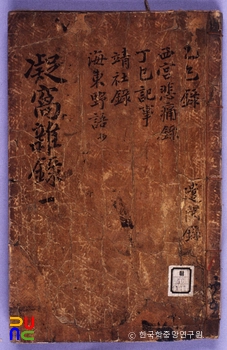 錄
錄
西宮悲痛錄
丁巳記事
靖社錄
海東野語
凝窩雜錄 一
© 한국학중앙연구원